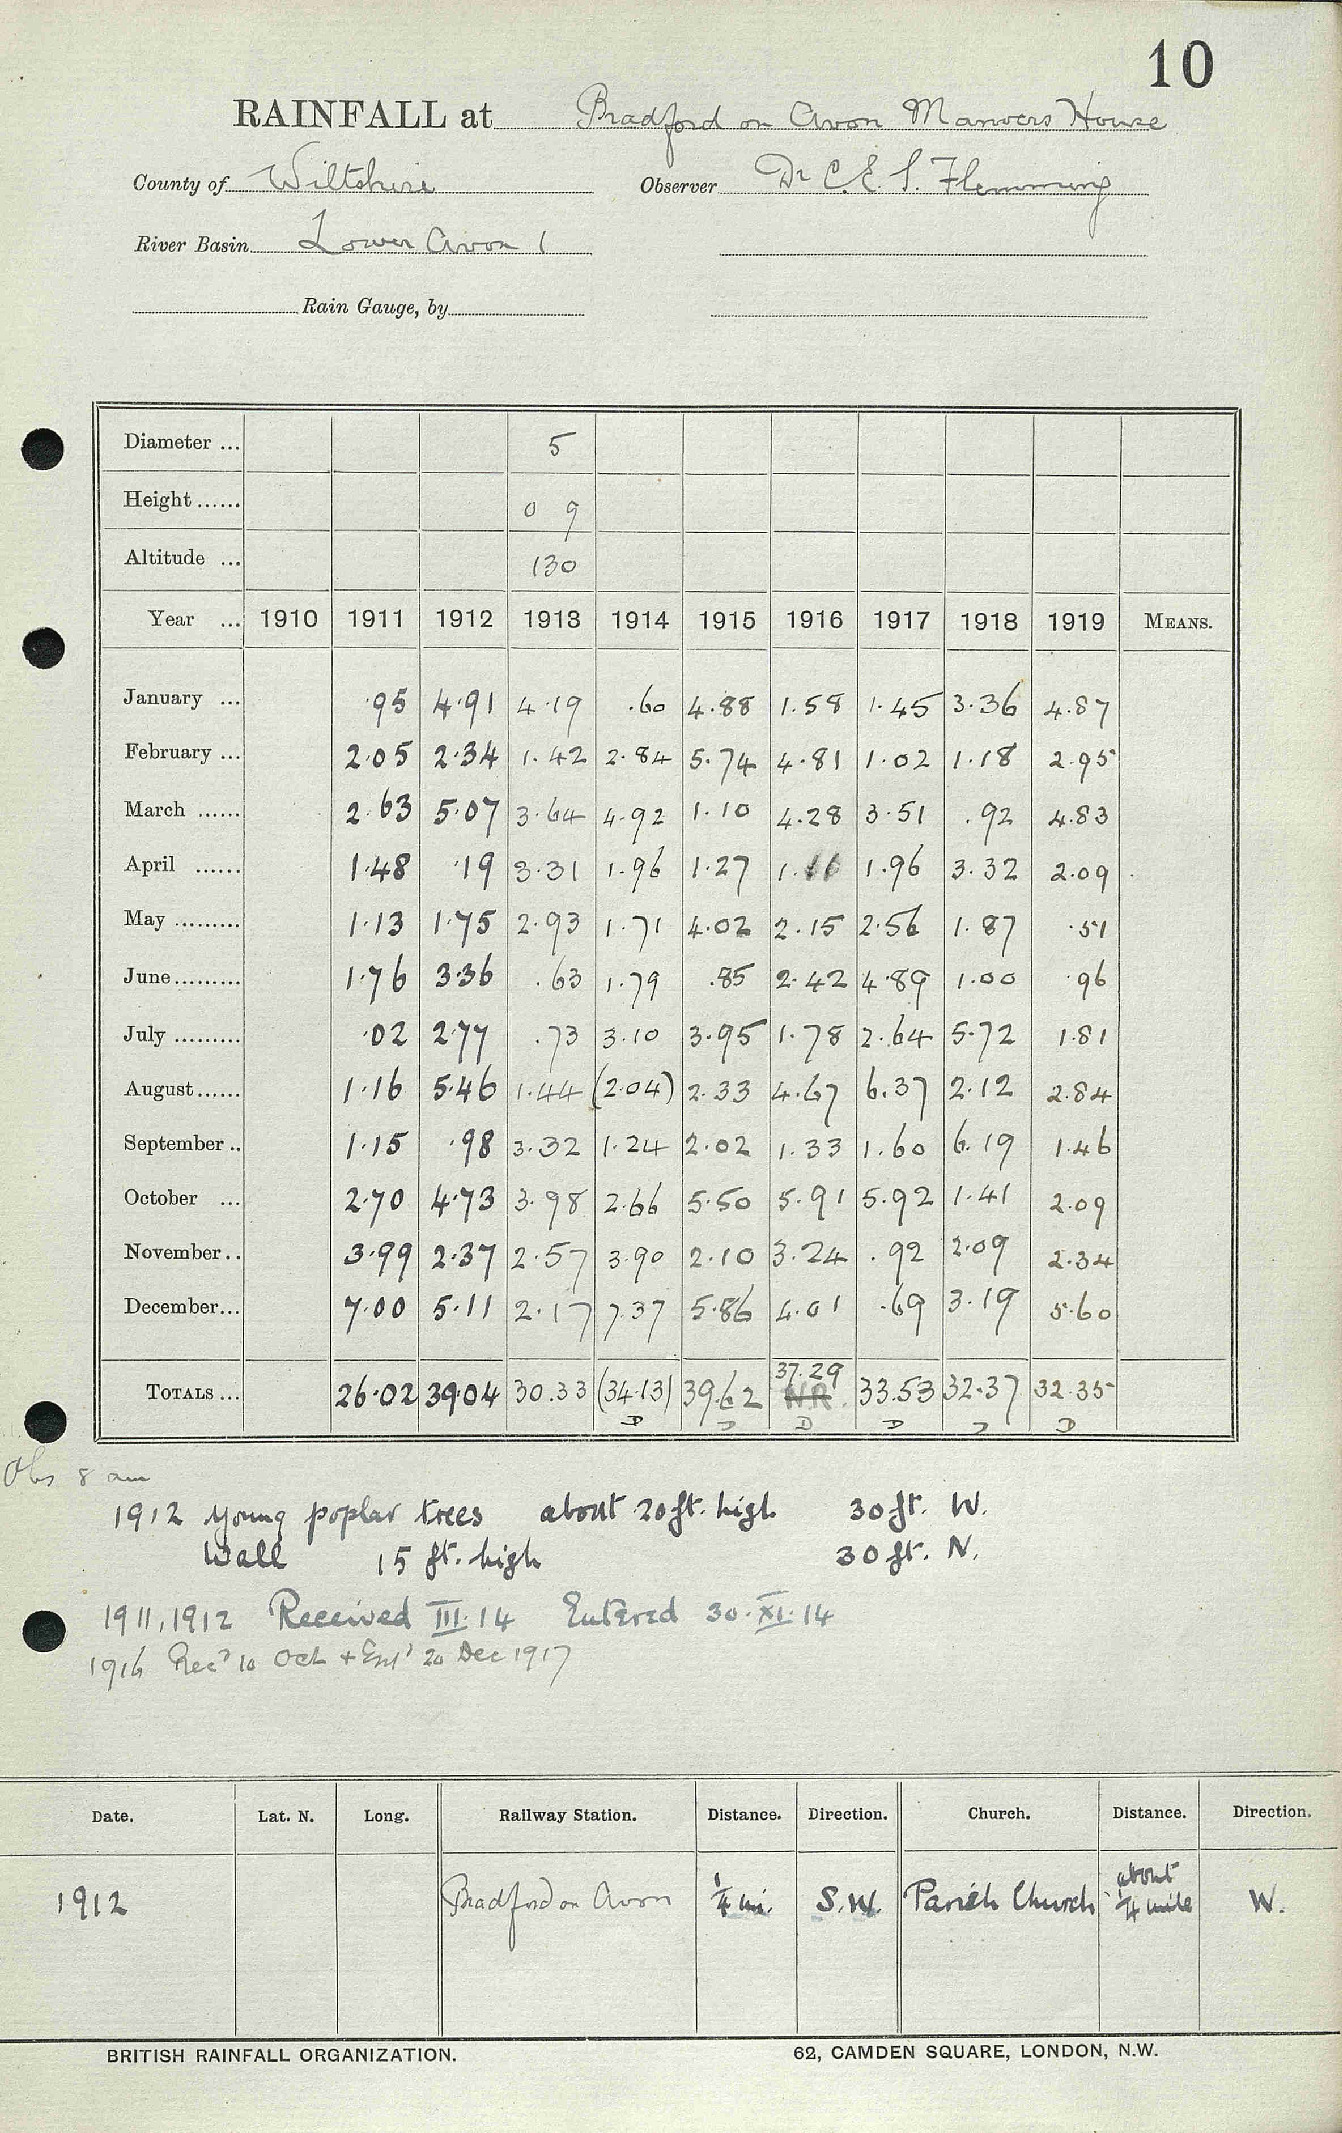 10
RAINFALL at Bradford on Avon Manvers House
County of Wiltshire Observer Dr C. E. S. Flemming
River Basin Lower Avon 1
Rain Gauge, by
Diameter ... 5
Height ...... 0 9
Altitude ... 130
Year ... 1910 1911 1912 1913 1914 1915 1916 1917 1918 1919 MEANS.
January ... ·95 4·91 4·19 .60 4.88 1.58 1.45 3.36 4.87
February ... 2·05 2·34 1.42 2.84 5.74 4.81 1.02 1.18 2.95
March ...... 2·63 5·07 3.64 4.92 1.10 4.28 3.51 .92 4.83
April ...... 1·48 ·19 3.31 1.96 1.27 1.96 3.32 2.09
May ......... 1·13 1·75 2.93 1.71 4.02 2.15 2.56 1.87 ·51
June ......... 1·76 3·36 .63 1.79 .85 2.42 4.89 1.00 ·96
July ......... ·02 2·77 .73 3.10 3.95 1.78 2.64 5.72 1.81
August ...... 1·16 5·46 1.44 (2.04) 2.33 4.67 6.37 2.12 2.84
September .. 1·15 ·98 3.32 1.24 2.02 1.33 1.60 6.19 1.46
October ... 2·70 4·73 3.98 2.66 5.50 5.91 5.92 1.41 2.09
November .. 3·99 2·37 2.57 3.90 2.10 3.24 .92 2.09 2.34
December ... 7·00 5·11 2.17 7.37 5.86 4.01 .69 3.19 5.60
37.29
TOTALS ... 26·02 39·04 30.33 (34.13) 39.62 N.R. 33.53 32.37 32.35
D D D D D D
Obs 8 am
1912 Young poplar trees about 20 ft. high 30 ft. W.
Wall 15 ft. high 30 ft. N.
1911, 1912 Received III.14 Entered 30.XI.14
1916 Recd 10 Oct + Entd 20 Dec 1917
Date. Lat. N. Long. Railway Station. Distance. Direction. Church. Distance. Direction.
1912 Bradford on Avon 1/4 mi. S.W. Parish Church about 1/4 mile W.
BRITISH RAINFALL ORGANIZATION. 62, CAMDEN SQUARE, LONDON, N.W.